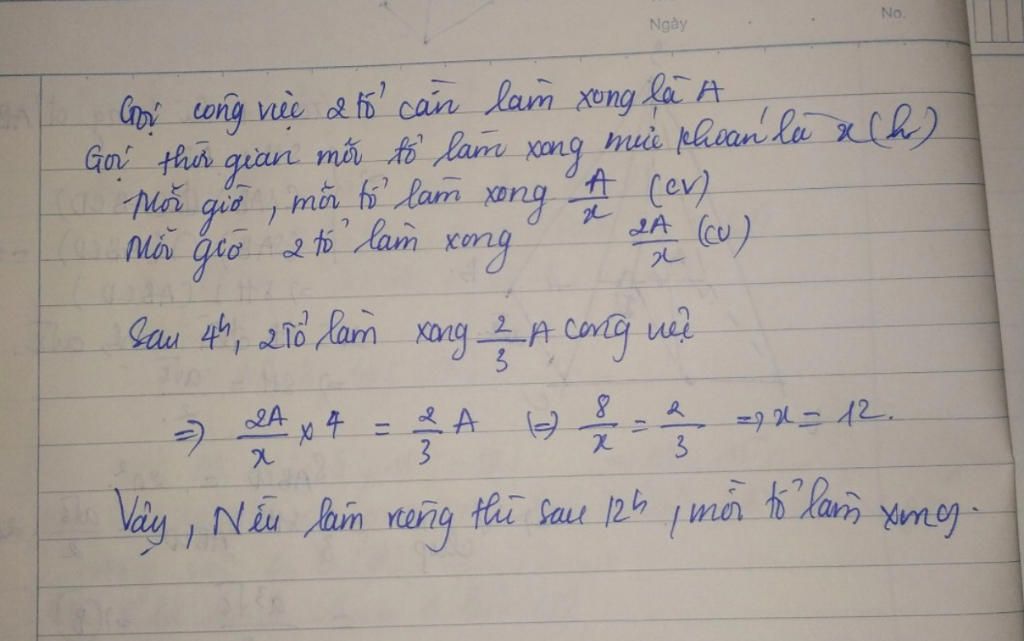 Ngày
No.
Gọi công việc 2 tổ cần làm xong là A
Gọi thời gian mỗi tổ làm xong mức khoán là x (h)
Mỗi giờ, mỗi tổ làm xong A/x (CV)
Mỗi giờ 2 tổ làm xong 2A/x (CV)
Sau 4h, 2 tổ làm xong 2/3 A công việc
=> 2A/x × 4 = 2/3 A (=) 8/x = 2/3 => x = 12.
Vậy, Nếu làm riêng thì sau 12h, mỗi tổ làm xong.